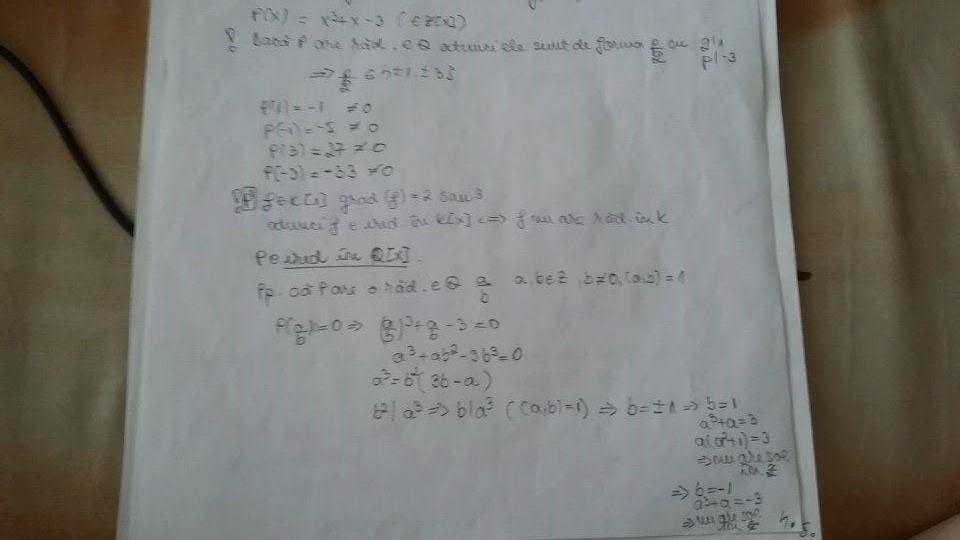 P(x) = x³+x-3 (∈Z[x])
! Dacă P are răd. ∈Q atunci ele sunt de forma p/q cu q|1
p|-3
⟹ p/q ∈ {±1, ±3}
P(1) = -1 ≠0
P(-1) = -5 ≠0
P(3) = 27 ≠0
P(-3) = -33 ≠0
f∈K[x] grad (f) = 2 sau 3
atunci f e ired în K[x] <=> f nu are răd. în K
P e ired în Q[x].
Pp. că P are o răd. ∈Q a/b a,b∈Z, b≠0, (a,b) = 1
P(a/b)=0 ⟹ (a/b)³+a/b-3=0
a³+ab²-3b³=0
a³=b²(3b-a)
b²|a³ ⟹ b|a³ ((a,b)=1) ⟹ b=±1 ⟹ b=1
a³+a=3
a(a²+1)=3
⟹nu are sol.
în Z
⟹ b=-1
a³+a=-3
⟹nu are sol.
în Z